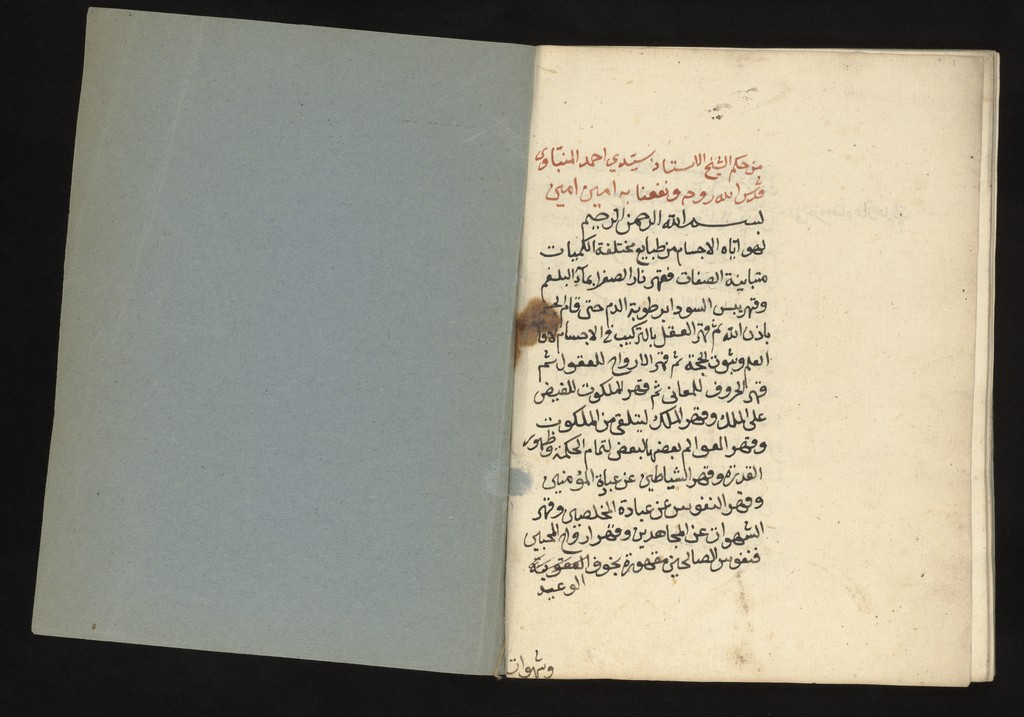 من حكم الشيخ الاستاذ سيدي احمد المنباوي
قدس الله روحه ونفعنا به امين امين
بسم الله الرحمن الرحيم
الاجسام من طبايع مختلفة الكميات
متباينة الصفات فقهر نار الصفرا بماء البلغم
وقهر يبس السودا برطوبة الدم حتى قام
باذن الله ثم قهر العقل بالتركيب في الاجسام
الحجة ثم قهر الارواح للعقول ثم
قهر الحروف للمعاني ثم قهر الملكوت للفيض
على الملك وقهر الملك ليتلقى من الملكوت
وقهر العوالم بعضها بالبعض لتمام الحكمة وظهور
القدرة وقهر الشياطين عن عباده المؤمنين
وقهر النفوس عن عبادة المخلصين وقهر
الشهوات عن المجاهدين وقهر ارواح المحبين
فنفوس الصالحين مقهورة بخوف العقوبة
الوعيد
وشهوات